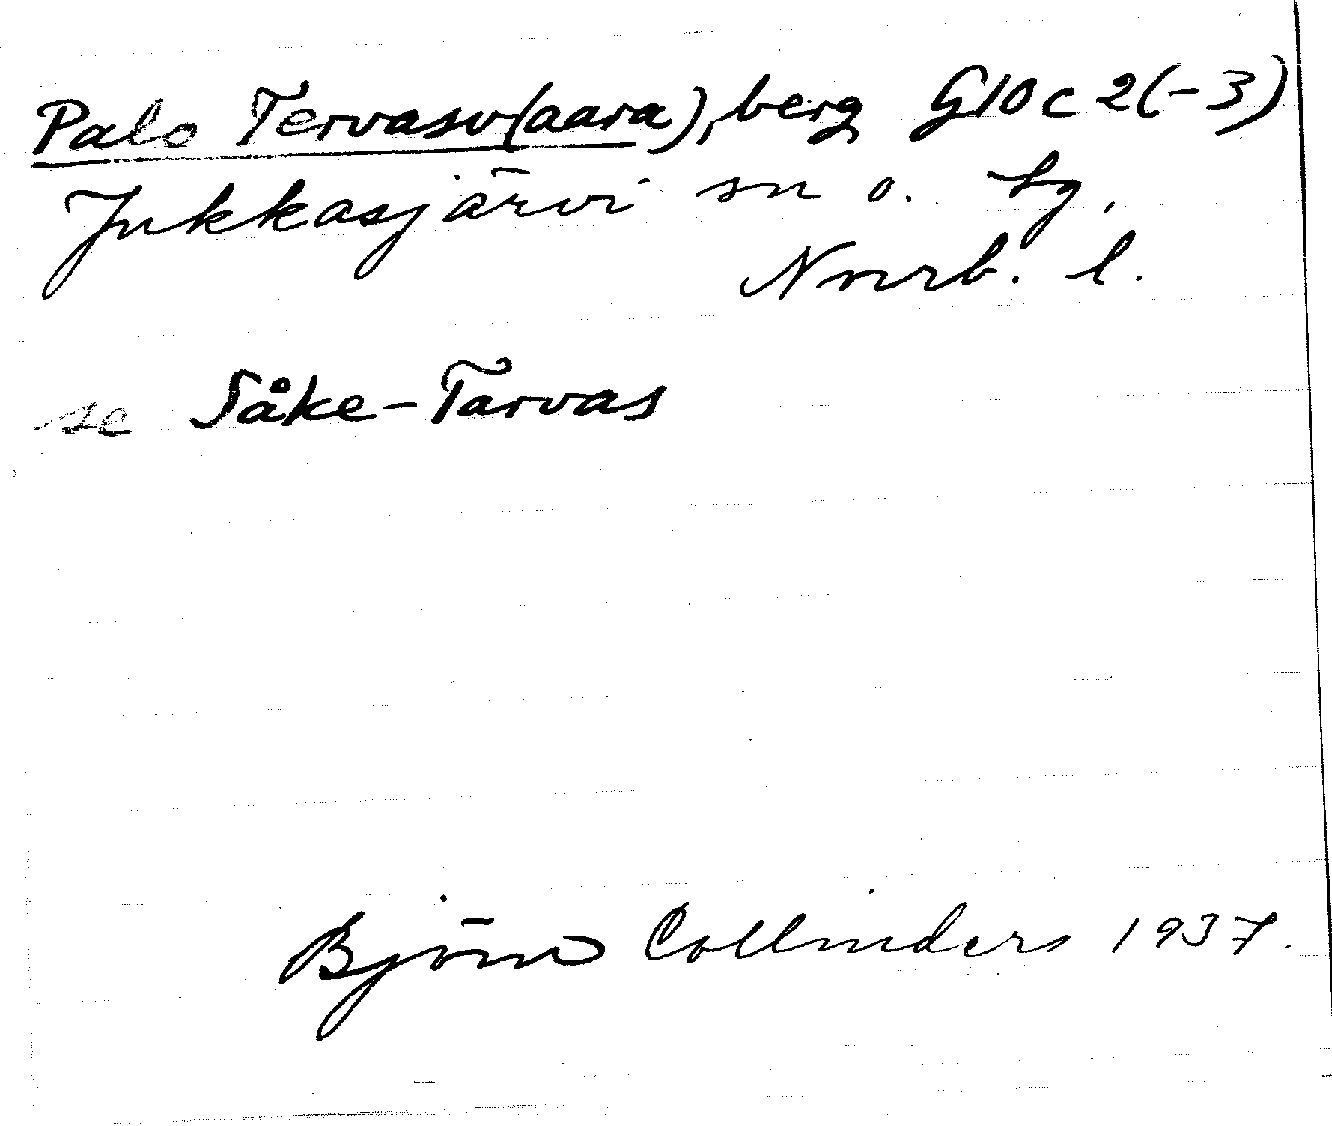 Palo Tervasv(aara), berg G10c2(-3)
Jukkasjärvi sn o. tg,
Norrb. l.
se Såke-Tarvas
Björn Collinders 1937.